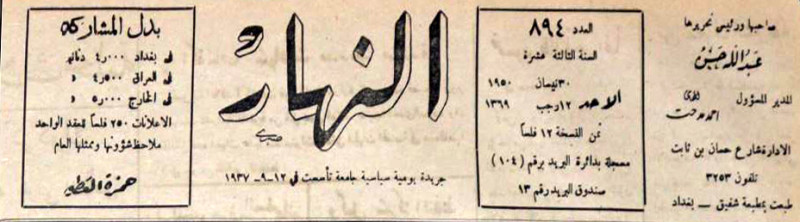 صاحبها ورئيس تحريرها
عبدالله حسن
المدير المسؤول
الادارة شارع حسان بن ثابت
تلفون ٣٢٥٣
طبعت بمطبعة شفيق – بغداد
العدد ٨٩٤
السنة الثالثة عشرة
الاحد
٣٠ نيسان ١٩٥٠
١٢ رجب ١٣٦٩
ثمن النسخة ١٢ فلساً
مسجلة بدائرة البريد برقم (١٠٤)
صندوق البريد رقم ١٣
النهار
جريدة يومية سياسية جامعة تأسست في ١٢-٩-١٩٣٧
بدل المشاركة
في بغداد ٤٫٠٠٠ دنانير
في العراق ٤٫٥٠٠ »
في الخارج ٥٫٠٠٠ »
الاعلانات ٢٥٠ فلساً للعقد الواحد
ملاحظ شؤونها وممثلها العام